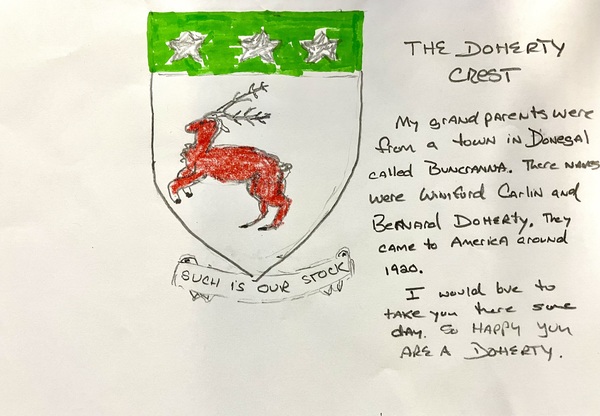 THE DOHERTY
CREST
My grandparents were
from a town in Donegal
called BUNCRANNA. There names
were Winiford Carlin and
Bernard Doherty. They
came to America around
1920.
I would love to
take you there some
day. So HAPPY YOU
ARE A DOHERTY.
SUCH IS OUR STOCK